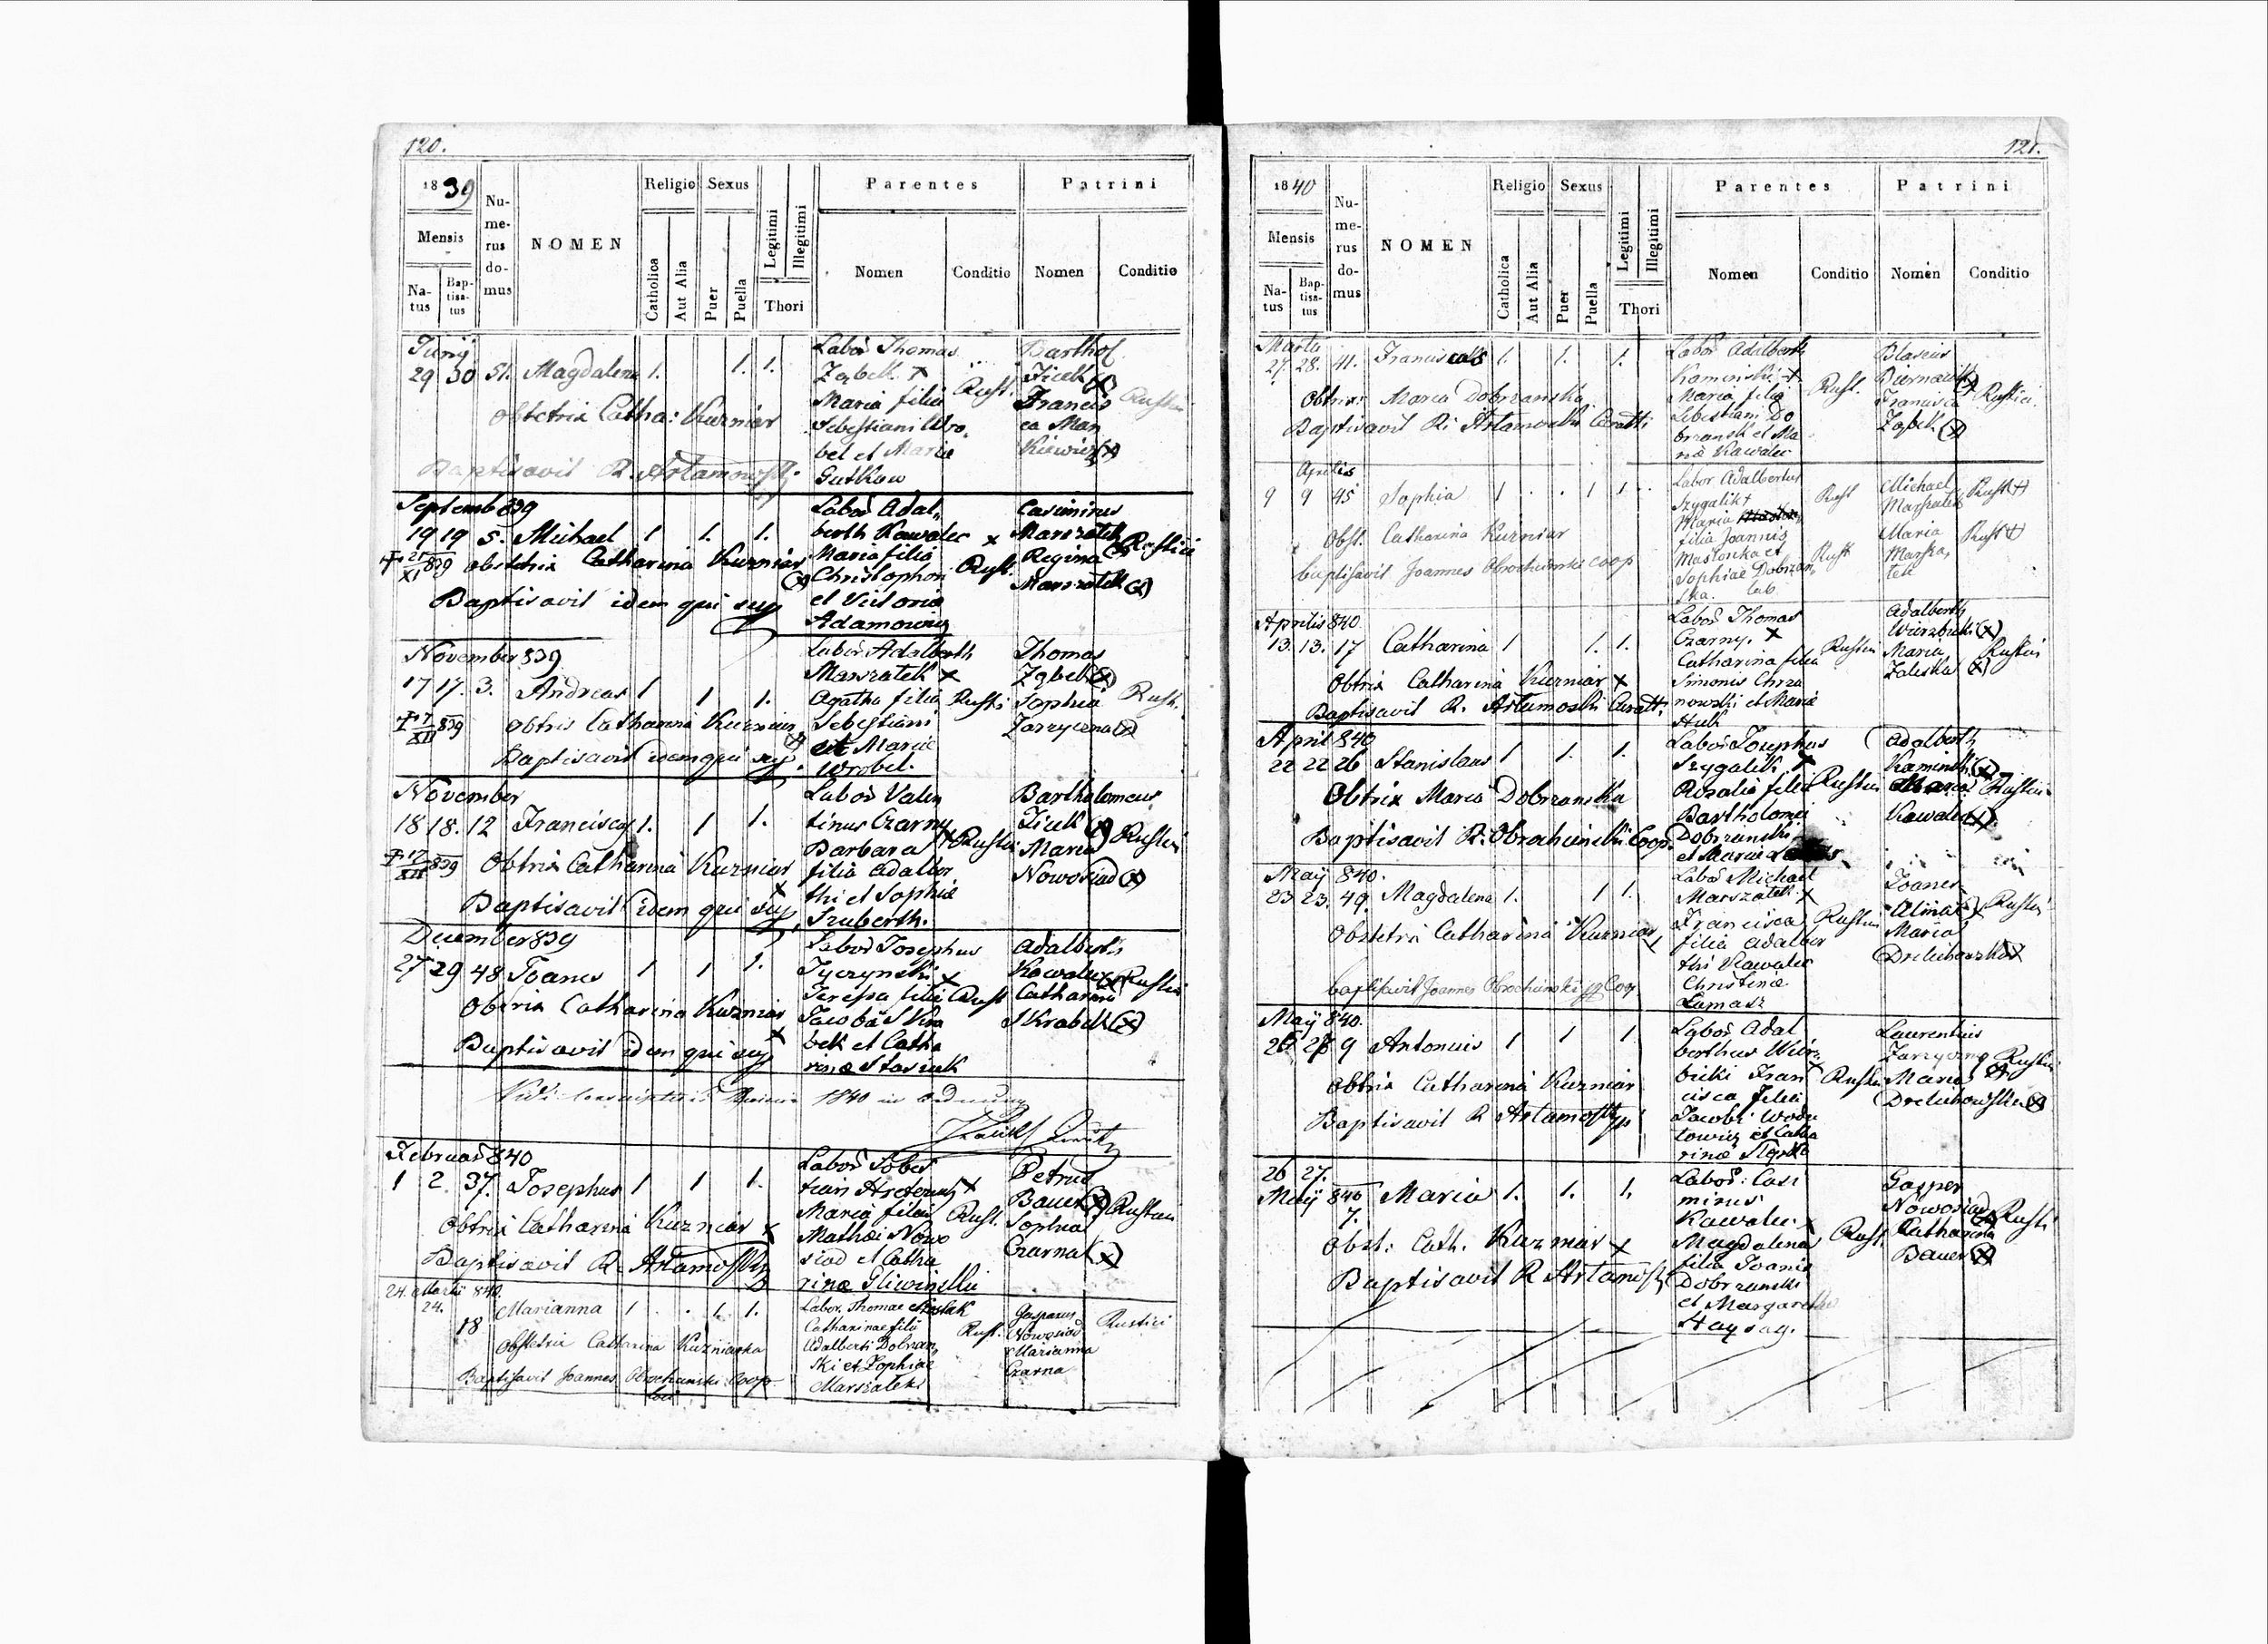 120.
1839
Numerus domus
NOMEN
Religio
Sexus
Legitimi
Illegitimi
Parentes
Patrini
Mensis
Natus
Baptisatus
Catholica
Aut Alia
Puer
Puella
Thori
Nomen
Conditio
Nomen
Conditio
Junÿ
29 30 51. Magdalena 1. 1. 1.
Obstetrix Catha: Kuzniar
Baptisavit R. Artamowski
Labor Thomas
Ząbek +
Maria filia
Sebestiani Wro
bel et Maria
Gutkow
Rust.
Barthol
Jicek (x)
Francis
ca Man
Kiewicz (x)
Rustici
Septemb 839
19 19 5. Michael 1 1. 1.
obstetrix Catharina Kuzniar (x)
Baptisavit idem qui sup
Labor Adal
berth Kowalec x
Maria filia
Christophori
et Victoria
Adamowicz
Rust.
Casimirus
Marszałek
Regina
Marszałek (x)
Rustici
November 839
17 17. 3. Andreas 1 1 1.
Obtrix Catharina Kuzniar
Baptisavit idem qui sup.
Labor Adalberth
Marszałek x
Agatha filia
Sebestiani
et Maria
Wrobel.
Rusti
Thomas
Ząbek (x)
Sophia
Zarzyczna (x)
Rust.
November
18 18. 12 Franciscus 1. 1 1.
Obtrix Catharina Kuzniar x
Baptisavit idem qui sup
Labor Valen
tinus Czarny x
Barbara
filia Adalber
thi et Sophia
Szuberth.
Rustici
Bartholomeus
Jicek (x)
Maria
Nowosiad (x)
Rustici
December 839
27 29 48 Joanes 1 1 1.
Obtrix Catharina Kuzniar x
Baptisavit idem qui sup
Labor Josephus
Tyczynski x
Teressa filia
Jacobi Skra
bek et Catha
rina Stasiuk
Rust
Adalberts
Kowalec (x)
Catharina
Skrabek (x)
Rustici
1840 in Ordnung
Februar 840
1 2. 37. Josephus 1 1 1.
Obtrix Catharina Kuzniar x
Baptisavit R. Artamowski
Labor Sobes
Maria filia
Mathei Nowo
siad et Catha
rina Sliwinski
Rust.
Petrus
Bauer (x)
Sophia
Czarna (x)
Rustici
24. Martii 840.
24. 18 Marianna 1 . . 1. 1.
Obstetrix Catharina Kuzniarka
Baptisavit Joannes Obrochunski Coop
Labor. Thomae
Catharinae filii
Adalberti Dobrzan
ski et Zophiae
Marszałek
Rust.
Gasparus
Nowosiad
Marianna
Czarna
Rustici
121.
1840
Numerus domus
NOMEN
Religio
Sexus
Legitimi
Illegitimi
Parentes
Patrini
Mensis
Natus
Baptisatus
Catholica
Aut Alia
Puer
Puella
Thori
Nomen
Conditio
Nomen
Conditio
Martii
27. 28. 41. Franciscus 1. 1. 1.
Obtrix: Maria Dobrzanska
Baptisavit R. Artamowski Curatt
Labor Adalberth
Kaminski +
Maria filia
Sebestiani Do
brzansk et Ma
ria Kawalec
Rust.
Blasius
Biernacki (x)
Francisca
Ząbek (x)
Rustici
Aprilis
9 9 45 Sophia 1 . . 1 1
Obst. Catharina Kuzniar
baptisavit Joannes Obrochunski coop
Labor Adalbertus
Szygalik +
Maria
filia Joannis
Maslonka et
Sophiae Dobrzan
ska. lab.
Rust
Rust
Michael
Marszałek
Maria
Marsza
łek
Rust (+)
Rust (+)
Aprilis 840
13. 13. 17 Catharina 1 1. 1.
Obtrix Catharina Kuzniar x
Baptisavit R. Artamoski Curatt.
Labor Thomas
Czarny. x
Catharina filia
Simonis Chrza
nowski et Maria
Huk
Rustici
Adalberth
Wierzbicki (x)
Maria
Zaleska (x)
Rustici
April 840
22 22 26 Stanislaus 1 1. 1.
Obtrix Maria Dobrzanska
Baptisavit R. Obrochunski Coop.
Labor Josephus
Szygalik x
Rozalia filia
Bartholomei
Dobrzanski
et Maria
Rustici
Adalberth
Kaminski (x)
Maria
Kowalec (x)
Rustici
Maÿ 840.
23 23. 49. Magdalena 1. 1 1.
Obstetrix Catharina Kuzniar x
baptisavit Joannes Obrochunski Coop
Labor Michael
Marszałek x
Francisca
filia Adalber
thi Kawalec
Christina
Lamasz
Rustici
Joanes
Maria
Rustici
Maÿ 840.
26 28 9 Antonius 1 1 1
Obtrix Catharina Kuzniar
Baptisavit R Artamoski
Labor Adal
berthus Wierz
bicki Fran x
cisca filia
Jacobi Wodu
towicz et Catha
rina
Rustici
Laurentius
Zarzyczny
Maria (x)
Drelichowska (x)
Rustici
26 27.
Maÿ 840 Maria 1. 1. 1.
7.
Obst: Cath. Kuzniar x
Baptisavit R Artamoski
Labor: Casi
mirus
Kawalec x
Magdalena
filia Joanis
Dobrzanski
et Margaretha
Haysag.
Rust.
Gasper
Nowosiad (x)
Catharina
Bauer (x)
Rusti